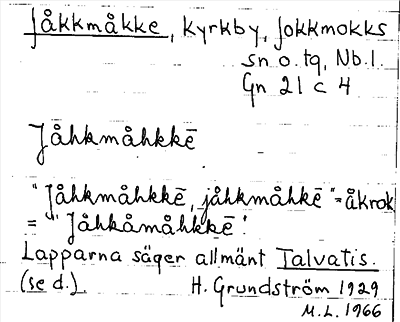 Jåkkmåkke, kyrkby, Jokkmokks
sn o. tg, Nb. l.
Gn 21 c 4
Jåhkmåhkkē
"Jåhkmåhkkē, jåhkmåhkē" = åkrok
= "Jåhkåmåhkkē".
Lapparna säger allmänt Talvatis.
(se d.). H. Grundström 1929
M.L. 1966